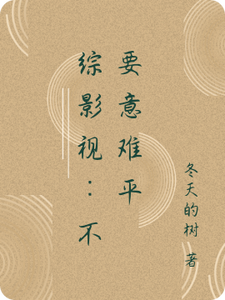 综影视：不
要意难平
冬天的树 著